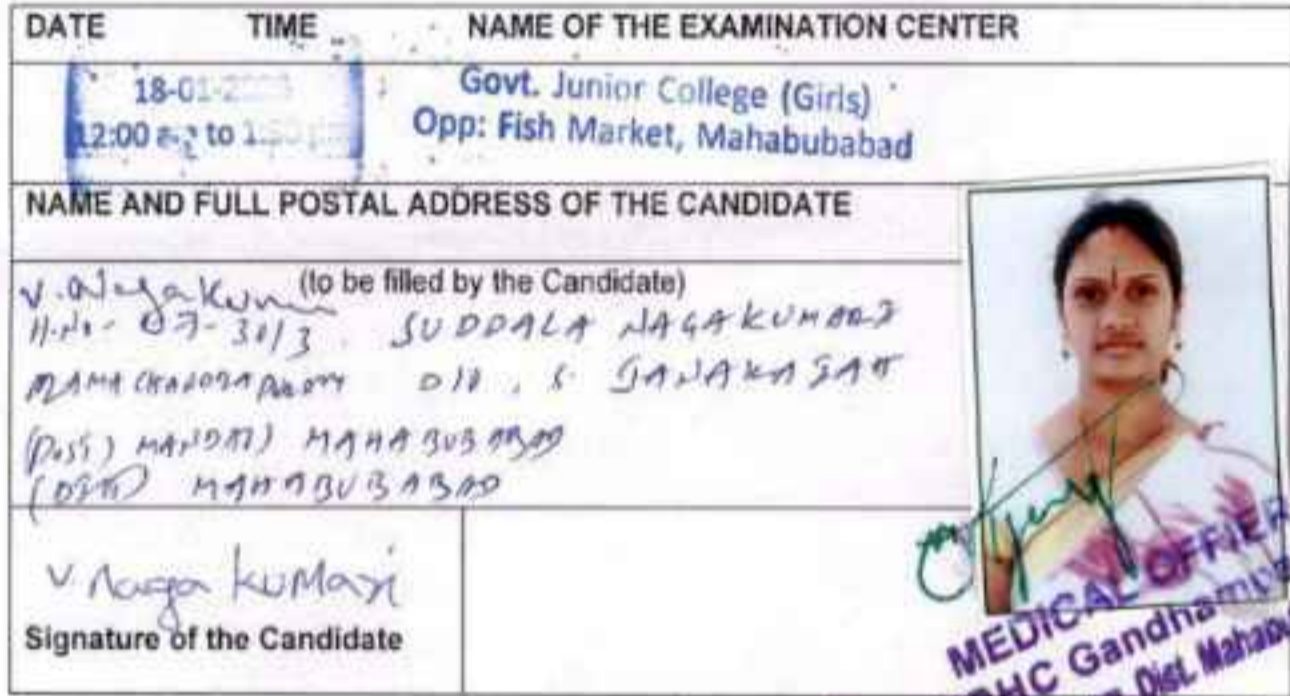 DATE TIME NAME OF THE EXAMINATION CENTER
18-01-2 Govt. Junior College (Girls)
12:00 to 1: Opp: Fish Market, Mahabubabad
NAME AND FULL POSTAL ADDRESS OF THE CANDIDATE
(to be filled by the Candidate)
V. Naga Kumari
H.No- 07-30/3. SUDDALA NAGAKUMARI
(Post) MANDAL) MAHABUBABAD
(DIST) MAHABUBABAD
V Naga KuMari
Signature of the Candidate
MEDICAL OFFIER
PHC
Dist.